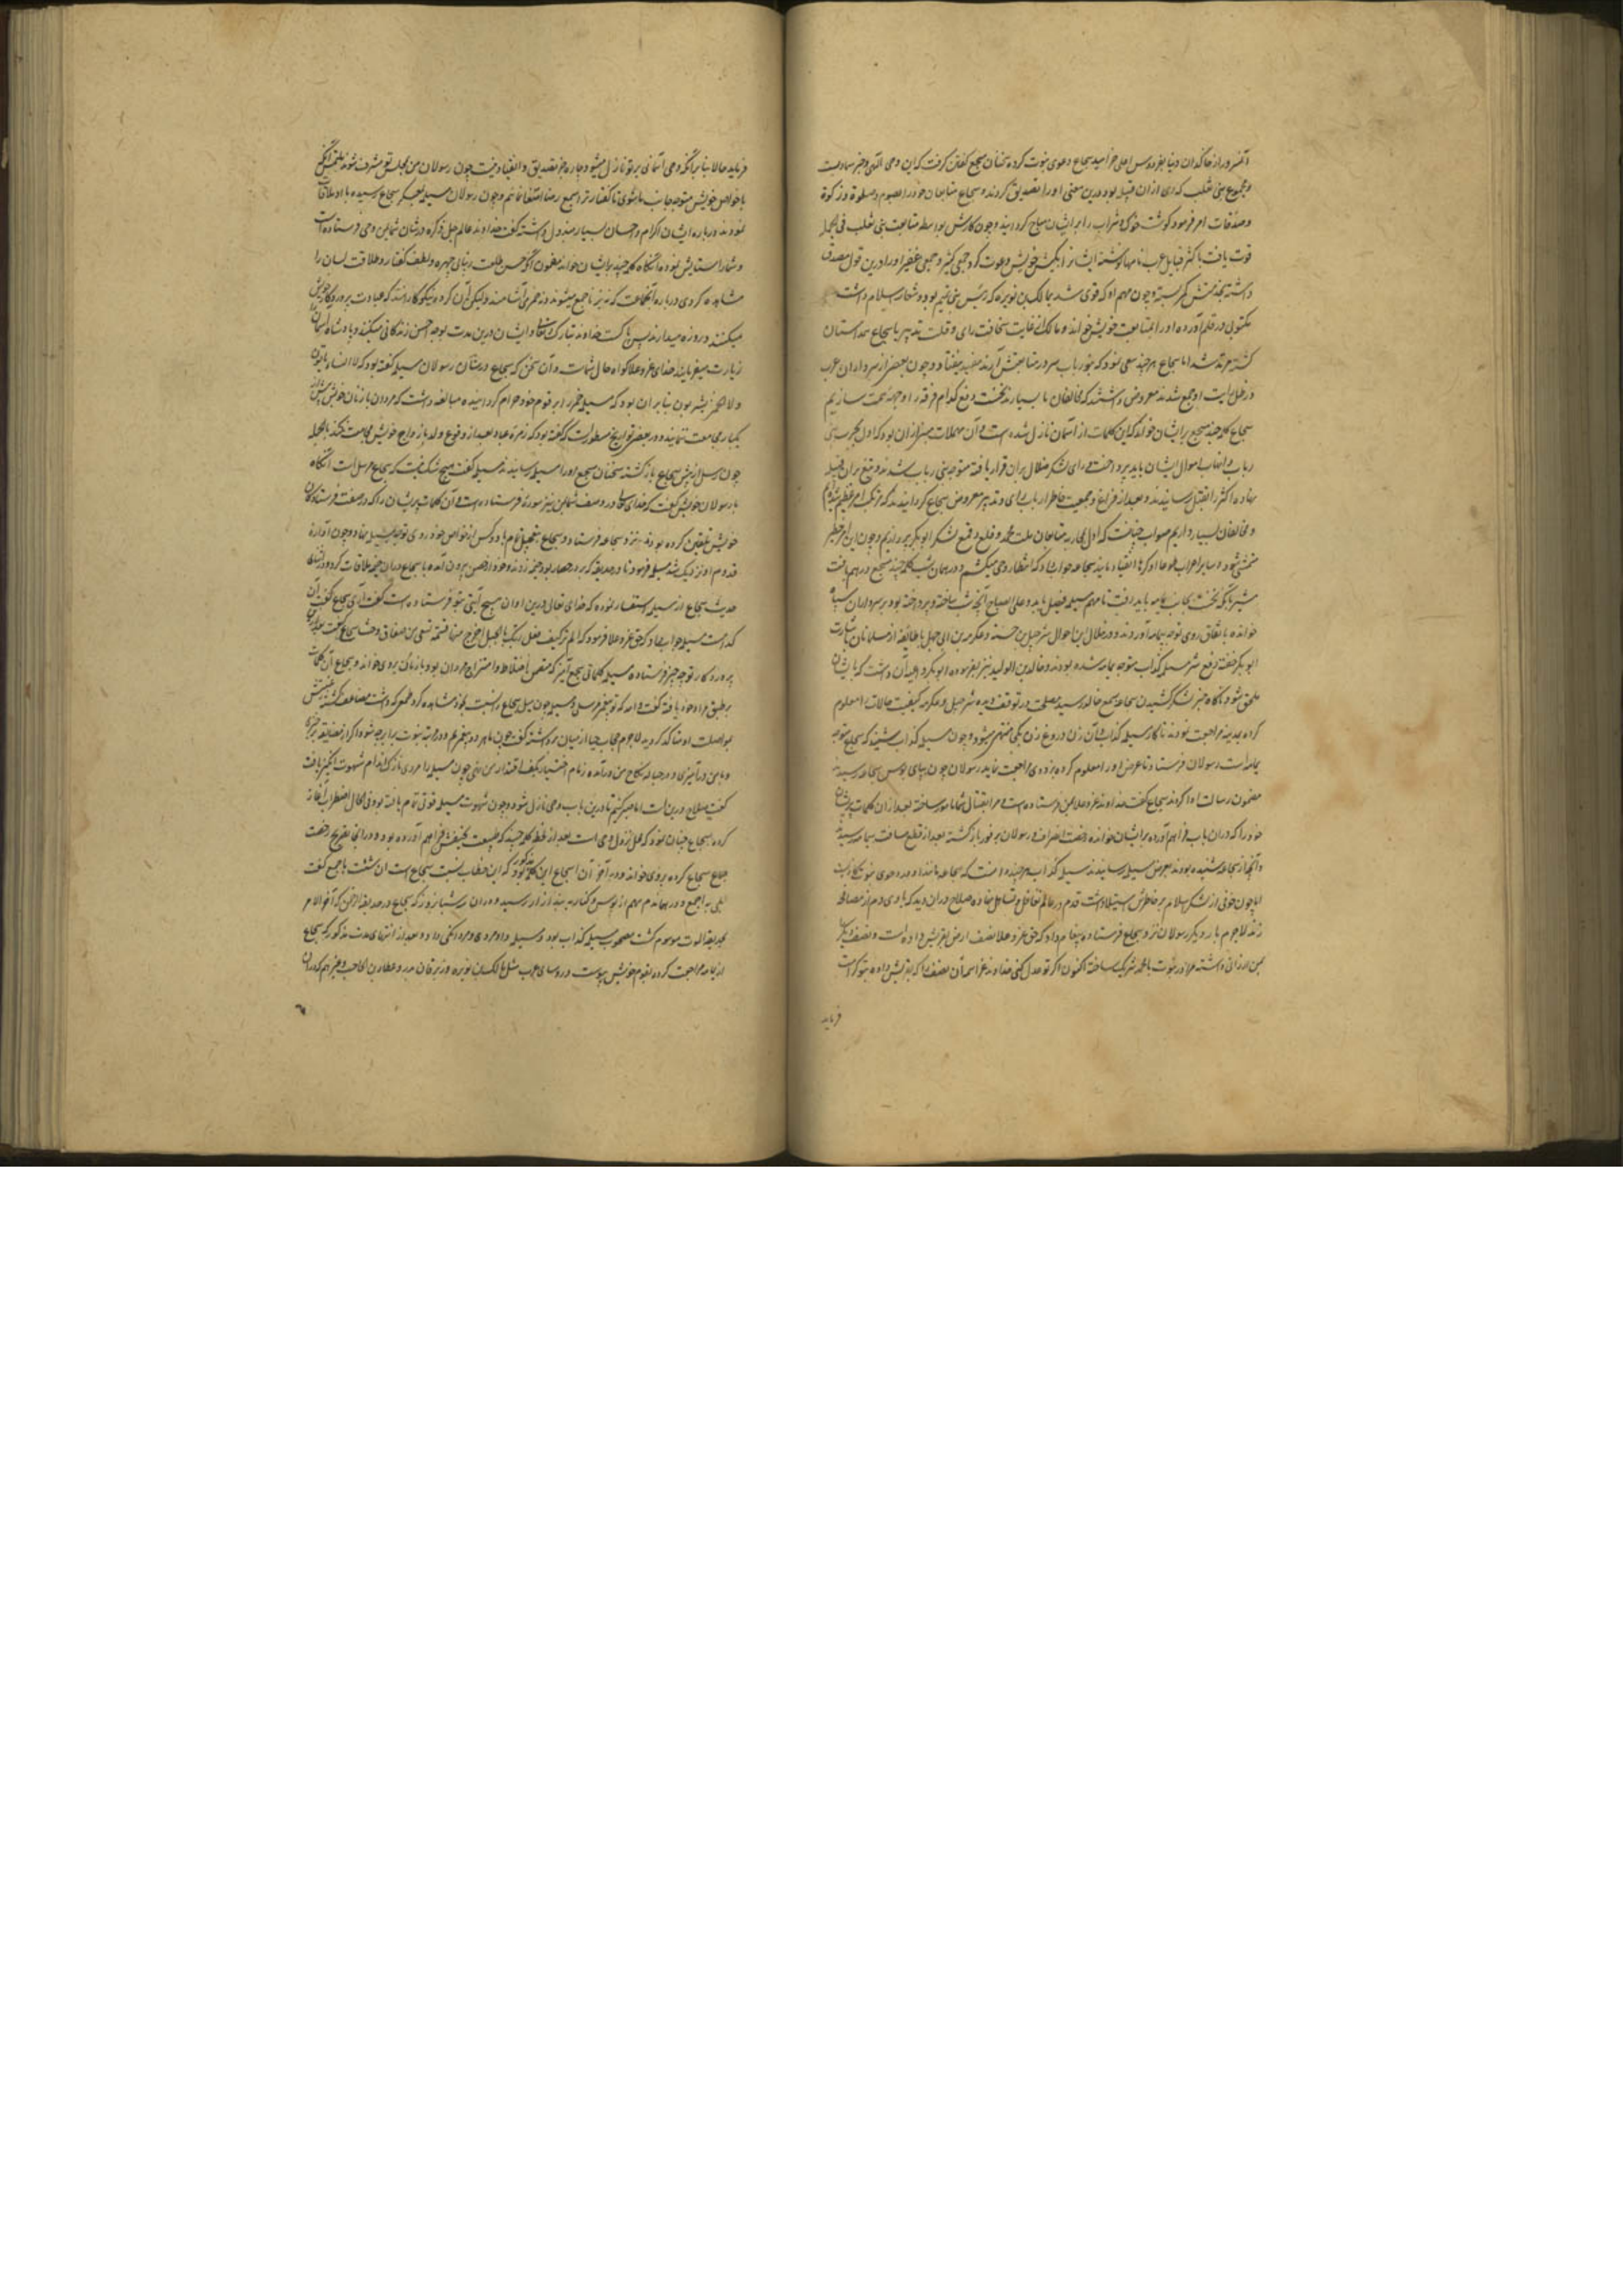 آنسرور از خاکدان دنیا بفردوس اعلی خرامید سجاح دعوی نبوت کرده سخنان مسجع گفتن گرفت که این وحی الهی و خبر سماویست
و مجموع بنی تغلب که وی ازان قبیله بود درین معنی او را تصدیق کردند و سجاح متابعان خود را بصوم و صلوة و زکوة
و صدقات امر فرمود گوشت خوک و شراب را بر ایشان مباح گردانید و چون کارش بواسطه متابعت بنی تغلب فی الجمله
قوت یافت باکثر قبایل عرب نامها نوشته ایشانرا بکیش خویش دعوت کرد و جمعی کثیر و جمعی غفیر او را درین قول مصدق
داشته بخدمتش کمر بسته و چون مهم او که قوی شد بمالک بن نویره که رئیس بنی تمیم بود و شعار اسلام داشت
مکتوبی در قلم آورده او را بمتابعت خویش خواند و مالک از غایت سخافت رای و قلت تدبیر با سجاح همداستان
گشته مرتد شد اما سجاح هر چند سعی نمود که بنو رباب سر در متابعتش آرند مفید نیفتاد و چون بعضی از سرداران عرب
در ظل رایت او جمع شدند معروض داشتند که مخالفان ما بسیارند نخست دفع کدام فرقه را وجهه همت سازیم
سجاح کلمه چند مسجع بر ایشان خواند که این کلمات از آسمان نازل شده است و آن مهملات مبنی ازان بود که اول بحرب بنی
رباب و انتهاب اموال ایشان باید پرداخت و رای لشکر ضلال بران قرار یافته متوجه بنی رباب شدند و تیغ بران قبیله
نهاده اکثر را بقتل رسانیدند و بعد از فراغ و جمعیت خاطر ارباب رای و تدبیر معروض سجاح گردانیدند که مرتکب امر عظیم شدیم
و مخالفان بسیار داریم صواب چنانست که اول بمحاربه متابعان ملت محمد و قلع و قمع لشکر ابوبکر پردازیم و چون این امر خطیر
متمشی شود سایر اعراب طوعا او کرها انقیاد نمایند سجاح جواب داد که انتظار وحی میکشم و در همان شب کلمه چند مسجع درهم بافت
مشعر بانکه نخست بجانب یمامه باید رفت تا مهم مسیلمه فیصل یابد و علی الصباح آنچه شب ساخته و پرداخته بود بر سرداران سپاه
خوانده باتفاق روی توجه بیمامه آوردند و در خلال این احوال شرحبیل بن حسنه و عکرمه بن ابی جهل با طایفه از مسلمانان باشارت
ابوبکر جهت دفع شر مسیلمه کذاب متوجه یمامه شده بودند و خالد بن الولید نیز بفرموده ابوبکر داعیه آن داشت که بایشان
ملحق شود ناگاه خبر لشکر کشیدن سجاح بسمع خالد رسید مصلحت در توقف دیده شرحبیل و عکرمه کیفیت حالات را معلوم
کرده بمدینه مراجعت نمودند تا کار مسیلمه کذاب و آن زن دروغ زن بکجا منتهی میشود و چون مسیلمه کذاب شنید که سجاح متوجه
یمامه است رسولان فرستاد تا غرض او را معلوم کرده بزودی مراجعت نمایند رسولان چون بپای بوس سجاح رسیدند
مضمون رسالت ادا کردند سجاح گفت خداوند عز و علا بمن فرستاده است و مرا بقتال شما مامور ساخته بعد ازان کلمات پریشان
خود را که دران باب فراهم آورده بر ایشان خوانده رخصت انصراف داد رسولان بر فور بازگشته بعد از قطع مسافت بیمامه رسیدند
و آنچه از سجاح شنیده بودند بعرض مسیلمه رسانیدند مسیلمه کذاب هر چند دانست که سجاح مانند او در دعوی نبوت کاذبست
اما چون خوفی از لشکر اسلام بر خاطرش استیلا داشت قدم در عالم تغافل و تساهل نهاده صلاح دران دید که با وی دم از مصالحه
زند لاجرم بار دیگر رسولان نزد سجاح فرستاده پیغام داد که حق عز و علا نصف ارض بقریش داده است و نصف دیگر
بمن ارزانی داشته مرا در نبوت با محمد شریک ساخته اکنون اگر تو عدل کنی خداوند عز اسمه آن نصف را که بقریش داده بتو کرامت
فرماید
فرماید حالا بنا بر آنکه وحی آسمانی بر تو نازل میشود چاره جز تصدیق و انقیاد نیست چون رسولان من بمجلس تو مشرف شوند
با خواص خویش متوجه جانب ما شوی تا گفتار ترا بسمع رضا استماع نمایم و چون رسولان مسیلمه بعسکر سجاح رسیده با او ملاقات
نمودند در باره ایشان اکرام و احسان بسیار مبذول داشته گفت خداوند عالم جل ذکره در شان شما بمن وحی فرستاده است
و شما را ستایش نموده آنگاه کلمه چند بر ایشان خواند مضمون آنکه حسن طلعت و زیبائی چهره و لطف گفتار و طلاقت لسان را
مشاهده کردی در باره آنجماعت که نزد زنان جمع میشوند و خمر می آشامند ولیکن آن گروه نیکوکارانند که عبادت پروردگار خویش
میکنند و روزه میدارند پس پاکست خداوند تبارک و تعالی و ایشان درین مدت بوجه احسن زندگانی میکنند و پادشاه آسمان
زیارت میفرمایند خدای عز و علا گواه حال شماست و آن سخن که سجاح در شان رسولان مسیلمه گفته بود که لا النساء یاتون
ولا الخمر یشربون بنابران بود که مسیلمه خمر را بر قوم خود حرام گردانیده مبالغه داشت که مردان با زنان خویش بیش از
یکبار مجامعت ننمایند و در بعضی تواریخ مسطورست که گفته بود که زمره عباد بعد از وقوع ولد با ازواج خویش مجامعت نکنند بالجمله
چون رسل از پیش سجاح بازگشته سخنان مسجع او را بمسیلمه رسانیدند مسیلمه گفت هیچ شک نیست که سجاح مرسل است آنگاه
با رسولان خویش گفت که خدای تعالی در وصف شما بمن نیز سوره فرستاده است و آن کلمات پریشان را که در صفت فرستادگان
خویش تلفیق کرده بود نزد سجاح فرستاد و سجاح بتعجیل تمام با دو کس از خواص خود روی توجه بمسیلمه نهاد و چون آوازه
قدوم او نزدیک شد مسیلمه فرمود تا در حدیقه که بر در حصار بود خیمه زدند و خود از حصن بیرون آمده با سجاح دران خیمه ملاقات کرد و در اثنای
حدیث سجاح از مسیلمه استفسار نموده که خدای تعالی درین اوان هیچ آیتی بتو فرستاده است گفت آری سجاح گفت آن
کدامست مسیلمه جواب داد که حق عز و علا فرمود که الم تر کیف فعل ربک بالحبلی اخرج منها نسمة تسعی من صفاق وحشا سجاح گفت بعد ازان
پروردگار تو چه چیز فرستاده مسیلمه کلماتی مسجع آمیز که متضمن اختلاط و امتزاج مردان بود با زنان بر وی خواند و سجاح آن کلمات
بر طبق مراد خود یافته گفت و الله که تو پیغمبر مرسلی و مسیلمه چون میل سجاح را نسبت بخود مشاهده کرد طمعی که داشت مضاعف گشته
بمواصلت او متاکد گردید لاجرم حجاب حیا از میان برداشته گفت چون ما هر دو پیغمبریم و در مرتبه نبوت برابر چه شود اگر از مضایقه
و با من درآمیزی و در حباله نکاح من درآمده زمام اختیار بکف اقتدار من نهی چون مسیلمه را مردی نازک اندام شهوت انگیز یافت
گفت صلاح درین است اما صبر کنیم تا درین باب وحی نازل شود و چون شهوت مسیلمه قوتی تمام یافته بود فی الحال اضطراب آغاز
کرده سجاح چنان نمود که محل نزول وحی است بعد از لحظه کلمه چند که طبیعت کثیفش فراهم آورده بود و در انجا تصریح رخصت
جماع سجاح کرده بر وی خواند و در آخر آن اسجاع این کلمه مذکور بود که این خطاب نسبت سجاح است ان شئت باجمع گفت
بلی به اجمع و در همان دم مهم از بوس و کنار به بند ازار رسید و دران سه شبانروز که سجاح در حدیقة الرحمن که آخر الامر
بحدیقة الموت موسوم گشت مصحوب مسیلمه کذاب بود مسیلمه داد مردی و مردانگی داد و بعد از انقضای مدت مذکوره که سجاح
از یمامه مراجعت کرده بقوم خویش پیوست و روسای عرب مثل مالک بن نویره و زبرقان بن بدر و عطارد بن الحاجب و غیرهم که دران